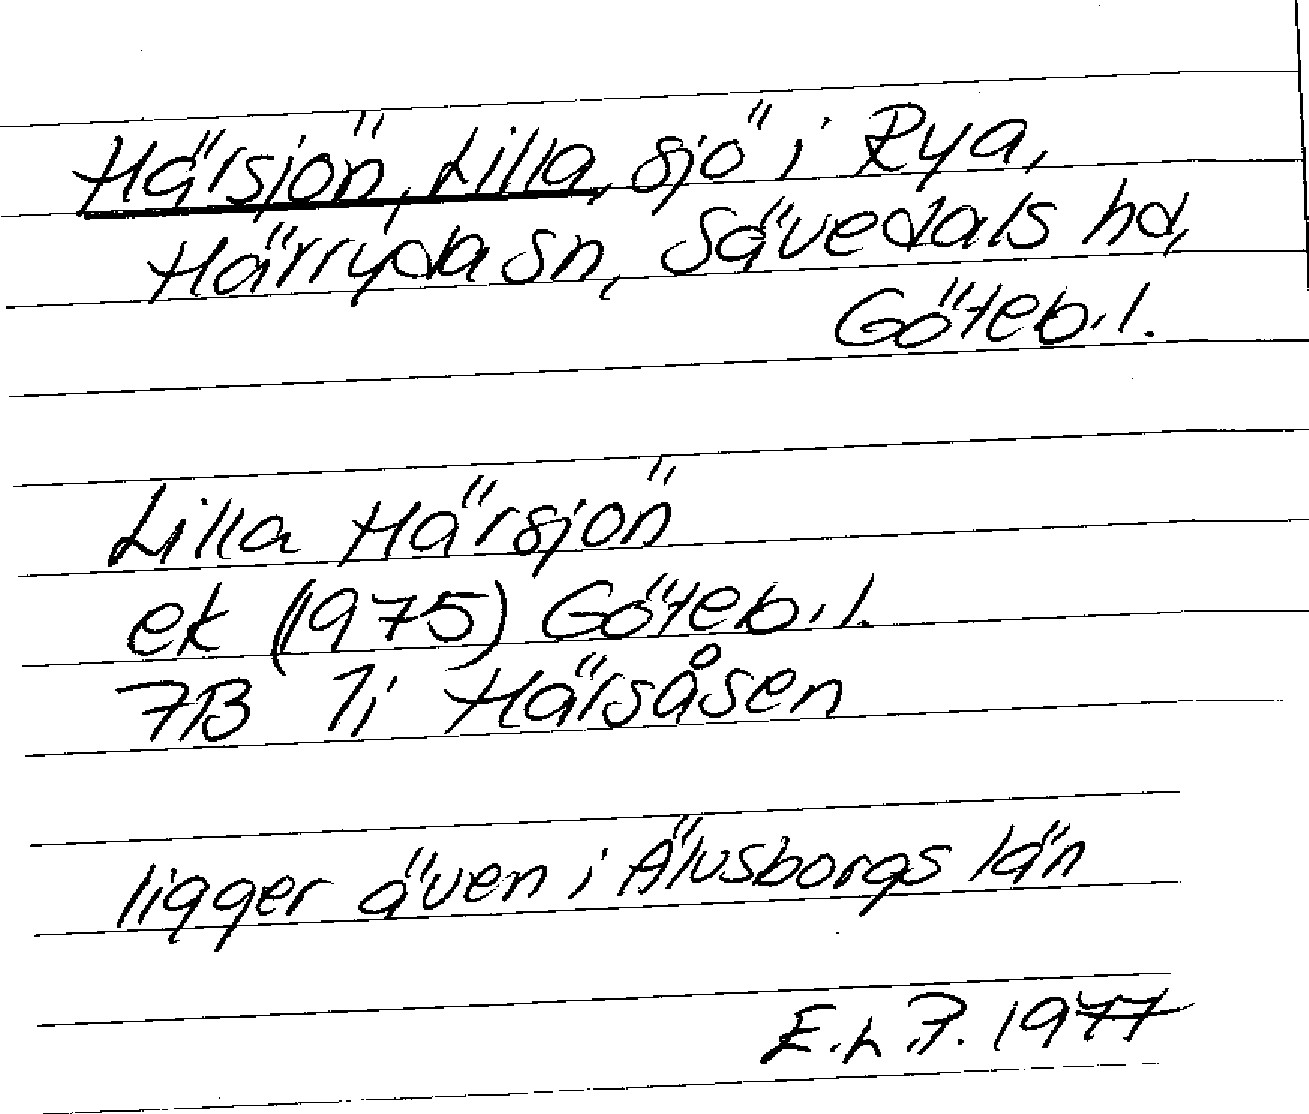 Härsjön, Lilla, sjö i Rya,
Härryda sn, Sävedals hd,
Göteb.l.
Lilla Härsjön
ek (1975) Göteb.l.
7B 7i Härsåsen
ligger även i Älvsborgs län
E.h.P. 1977